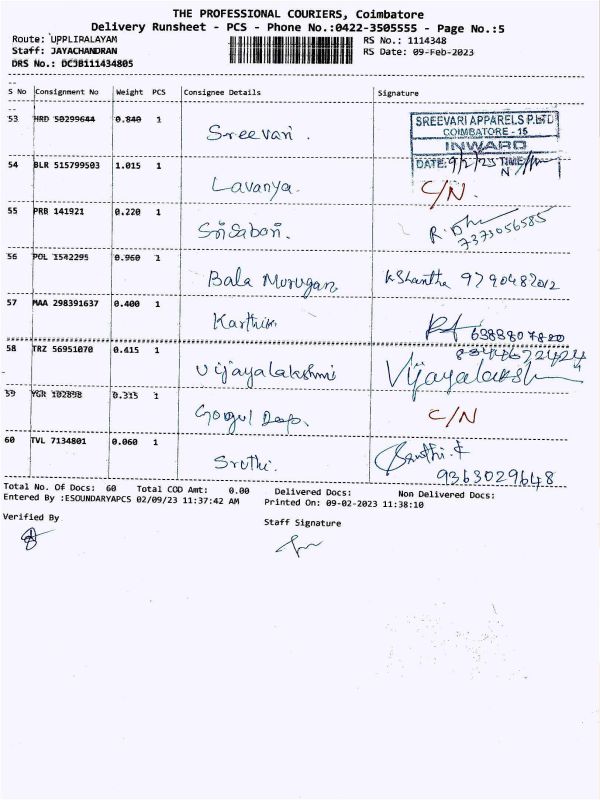 THE PROFESSIONAL COURIERS, Coimbatore
Delivery Runsheet - PCS - Phone No.:0422-3505555 - Page No.:5
Route: UPPLIPALAYAM
RS No.: 1114348
Staff: JAYACHANDRAN
RS Date: 09-Feb-2023
DRS No.: DCJB111434805
S No Consignment No Weight PCS Consignee Details Signature
53 HRD 50299644 0.840 1 Sreevari.
SREEVARI APPARELS P.LTD
COIMBATORE - 15
INWARD
DATE: 9/2/23 TIME
54 BLR 515799503 1.015 1 Lavanya. C/N.
55 PRB 141921 0.220 1 Sri Sabari. 7373056585
56 POL 1542295 0.960 1 Bala Murugan K Shantha 9790487012
57 MAA 298391637 0.400 1 Karthik 6388807820
58 TRZ 56951070 0.415 1 Vijayalakshmi 8344672424
Vijayalakshmi
59 YGR 102898 0.315 1 C/N
60 TVL 7134801 0.060 1 Sruthi. 9363029648
Total No. Of Docs: 60 Total COD Amt: 0.00 Delivered Docs: Non Delivered Docs:
Entered By :ESOUNDARYAPCS 02/09/23 11:37:42 AM Printed On: 09-02-2023 11:38:10
Verified By
Staff Signature